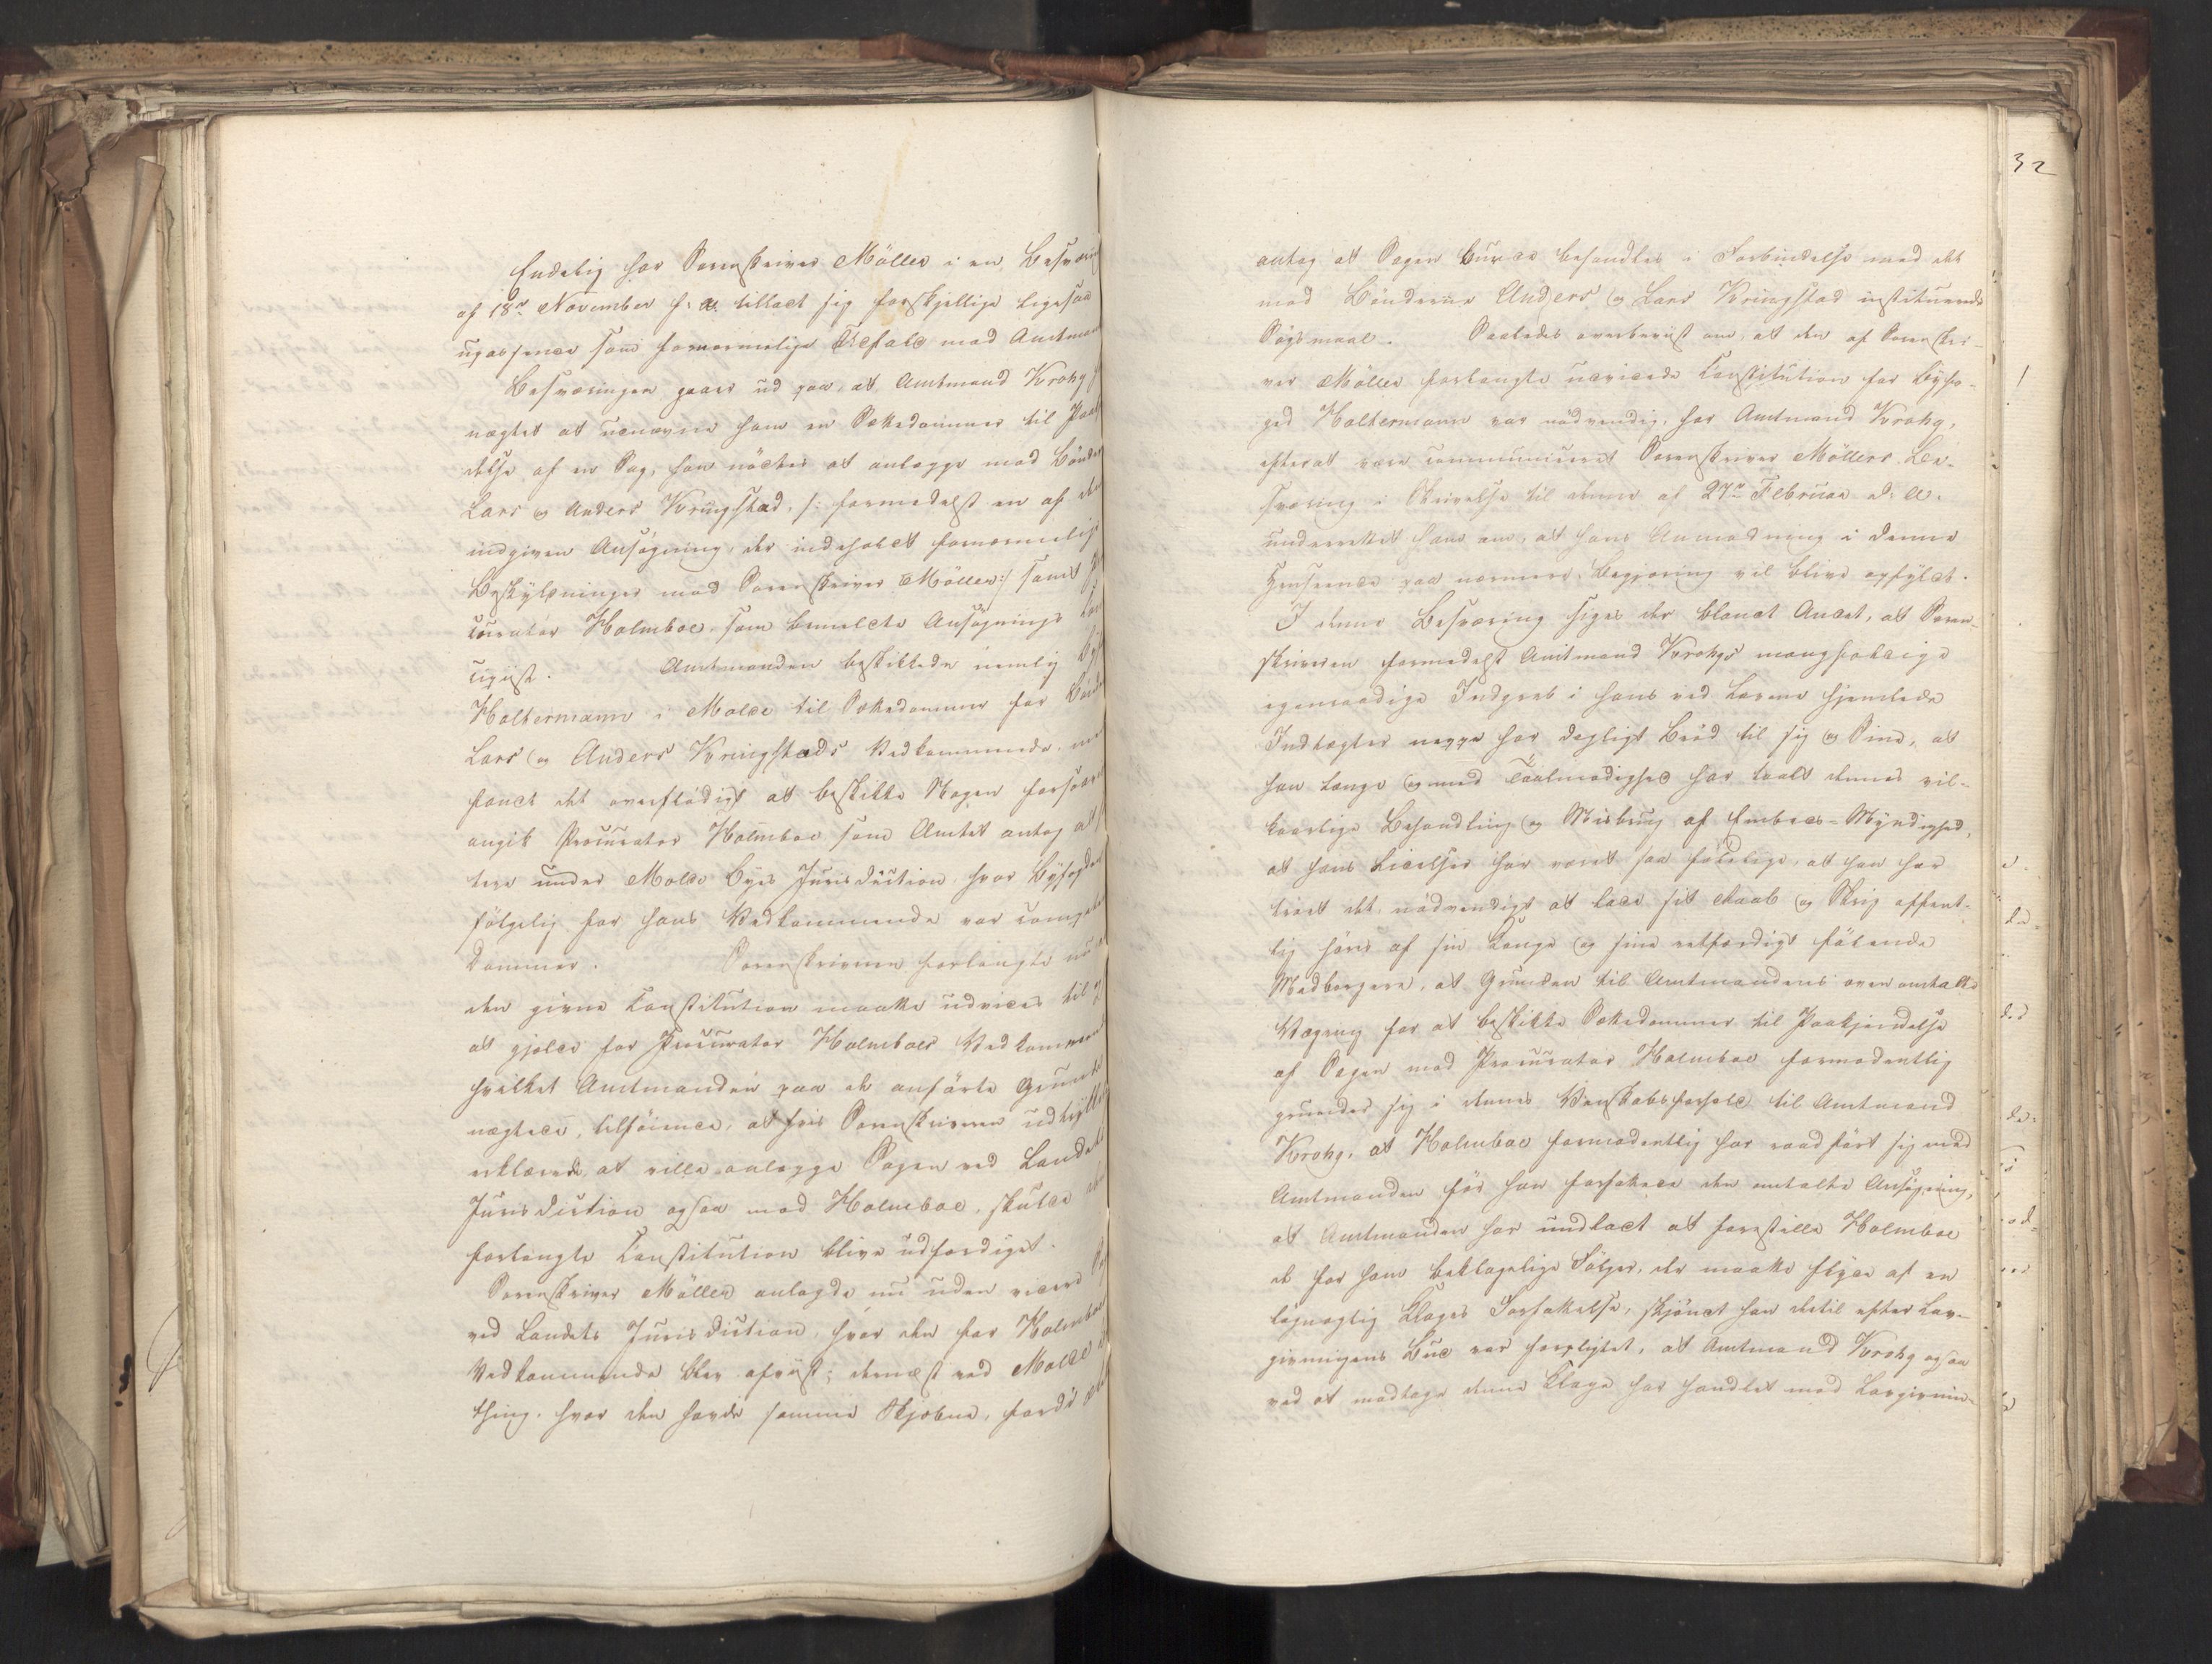 Endelig har Sorenskriver Möller i en Besværing
af 18de November f: A. tilladt sig forskjellige ligesaa
upassende som fornærmelige Udfald mod Amtman
Besværingen gaaer ud paa, at Amtmand Krohg
nægtet at udnævne ham en Settedommer til Paakjen
delse af en Sag, han ønsker at anlægge mod Bønderne
Lars og Anders Kringstad, /: formedelst en af dem
indgiven Ansøgning, der indeholdt fornærmelige
Beskyldninger mod Sorenskriver Möller :/ samt Pro
curator Holmboe, som bemeldte Ansøgnings Con
cipist. Amtmanden beskikkede nemlig By
Holtermann i Molde til Settedommer for Bønder
Lars og Anders Kringstads Vedkommende, men
fandt det overflødigt at beskikke Nogen forsaavidt
angik Procurator Holmboe, som Amtet antog at
tere under Molde Byes Jurisdiction, hvor Byfogden
følgelig for hans Vedkommende var competent
Dommer. Sorenskriveren forlangte nu
den givne Constitution maatte udvides til
at gjelde for Procurator Holmboes Vedkommende
hvilket Amtmanden paa de anførte Grunde
nægtede, tilføiende, at hvis Sorenskriveren udtrykkelig
erklærede at ville anlægge Sagen ved Landets
Jurisdiction ogsaa mod Holmboe, skulde den
forlangte Constitution blive udfærdiget.
Sorenskriver Möller anlagde nu uden videre
ved Landets Jurisdiction, hvor den for Holmboes
Vedkommende blev afviist; dernæst ved Molde
thing, hvor den havde samme Skjebne, fordi
32
antog at Sagen burde behandles i Forbindelse med det
mod Bønderne Anders og Lars Kringstad instituerede
Søgsmaal. Saaledes overbeviist om, at den af Sorenskri-
ver Möller forlangte udvidede Constitution for Byfo-
ged Holtermann var nødvendig, har Amtmand Krohg,
efterat være communiceret Sorenskriver Möllers Be-
sværing i Skrivelse til denne af 27de Februar d: A.
underrettet ham om, at hans Anmodning i denne
Henseende paa nærmere Begjæring vil blive opfyldt.
I denne Besværing siges der blandt Andet, at Soren-
skriveren formedelst Amtmand Krohgs mangfoldige
egenraadige Indgreb i hans ved Lovene hjemlede
Indtægter neppe har dagligt Brød til sig og Sine, at
han længe og med Taalmodighed har taalt dennes vil-
kaarlige Behandling og Misbrug af Embeds-Myndighed,
at hans Lidelser har været saa følelige, at han har
troet det nødvendigt at lade sit Raab og Skrig offent-
lig høres af sin Konge og sine retfærdigt følende
Medborgere, at Grunden til Amtmandens ovenomtalte
Vægring for at beskikke Settedommer til Paakjendelse
af Sagen mod Procurator Holmboe formodentlig
grunder sig i dennes Venskabsforhold til Amtmand
Krohg, at Holmboe formodentlig har raadført sig med
Amtmanden før han forfattede den omtalte Ansøgning,
at Amtmanden har undladt at forestille Holmboe
de for ham beklagelige Følger, der maatte flyde af en
løgnagtig Klages Forfattelse, skjøndt han dertil efter Lov-
givningens Bud var forpligtet, at Amtmand Krohg ogsaa
ved at modtage denne Klage har handlet mod Lovgivnin-